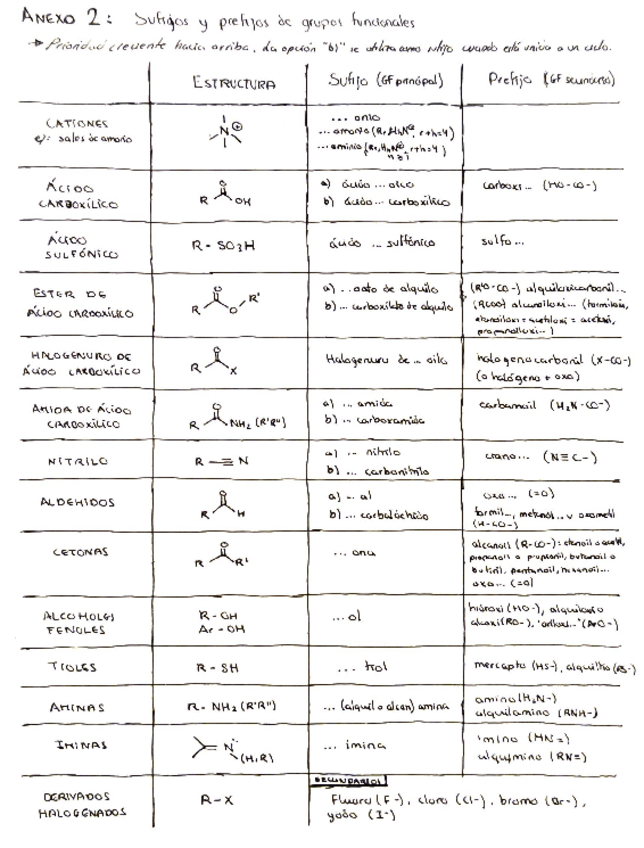 ANEXO 2: Sufijos y prefijos de grupos funcionales
→ Prioridad creciente hacia arriba. La opción "b)" se utiliza como sufijo cuando está unido a un ciclo.
ESTRUCTURA Sufijo (GF principal) Prefijo (GF secundario)
CATIONES
ej: sales de amonio
N⊕
... onio
... amonio (RrHhN⊕, r+h=4)
... aminio
ÁCIDO
CARBOXÍLICO
R O OH
a) ácido ... oico
b) ácido ... carboxílico
carboxi... (HO-CO-)
ÁCIDO
SULFÓNICO
R - SO3H
ácido ... sulfónico
sulfo...
ESTER DE
ÁCIDO CARBOXÍLICO
R O O R'
a) ...oato de alquilo
b) ... carboxilato de alquilo
(R'O-CO-) alquiloxicarbonil...
(RCOO) alcanoiloxi... (formiloxi,
etanoiloxi = acetiloxi = acetoxi,
propanoiloxi...)
HALOGENURO DE
ÁCIDO CARBOXÍLICO
R O X
Halogenuro de ... oilo
halogenocarbonil (X-CO-)
(o halógeno + oxo)
AMIDA DE ÁCIDO
CARBOXÍLICO
R O NH2 (R'R")
a) ... amida
b) ... carboxamida
carbamoil (H2N-CO-)
NITRILO
R ≡ N
a) ... nitrilo
b) ... carbonitrilo
ciano... (N≡C-)
ALDEHIDOS
R O H
a) ... al
b) ... carbaldehído
oxo... (=O)
formil..., metanoil... u oxometil
(H-CO-)
CETONAS
R O R'
... ona
alcanoil (R-CO-): etanoil o acetil,
propanoil o propionil, butanoil o
butiril, pentanoil, hexanoil...
oxo... (=O)
ALCOHOLES
FENOLES
R - OH
Ar - OH
... ol
hidroxi (HO-), alquiloxi o
alcoxi (RO-), "ariloxi..." (ArO-)
TIOLES
R - SH
... tiol
mercapto (HS-), alquiltio (RS-)
AMINAS
R - NH2 (R'R")
... (alquil o alcan) amina
amino (H2N-)
alquilamino (RNH-)
IMINAS
= N (H,R)
... imina
imino (HN=)
alquimino (RN=)
DERIVADOS
HALOGENADOS
R - X
SECUNDARIOS
Fluoro (F-), cloro (Cl-), bromo (Br-),
yodo (I-)